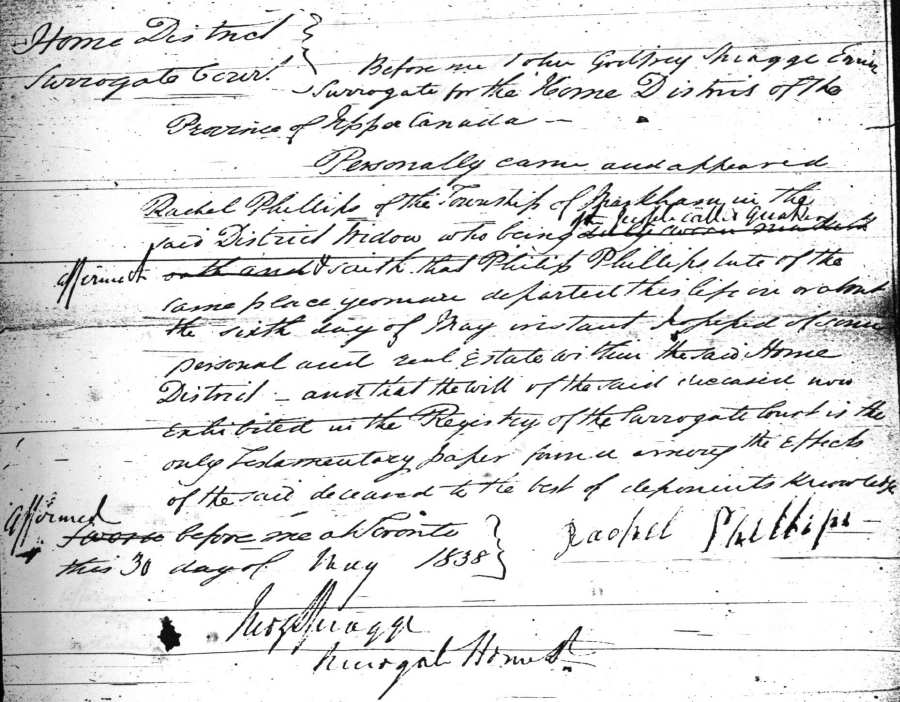 Home District
Surrogate Court
Before me John Godfrey Spragge Esquire
Surrogate for the Home District of the
Province of Upper Canada —
Personally came and appeared
Rachel Phillips of the Township of Markham in the
people called Quakers
said District Widow who being duly sworn maketh
affirmeth oath and & saith that Philip Phillips late of the
same place yeoman departed this life on or about
the sixth day of May instant possessed of some
personal and real Estate within the said Home
District — and that the will of the said deceased now
exhibited in the Registry of the Surrogate Court is the
only Testamentary paper found among the Effects
of the said deceased to the best of deponents knowledge
affirmed
Sworn before me at Toronto
this 30 day of May 1838
Rachel Phillips
Jno G Spragge
Surrogate Home Dt